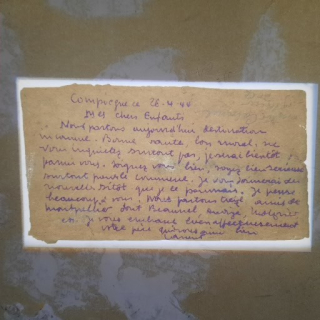 Compiègne ce 26.4.44
Mes chers Enfants
Nous partons aujourd'hui destination
inconnue. Bonne santé, bon moral, ne
vous inquiétez surtout pas, je serai bientôt
parmi vous. Soignez vous bien, soyez bien
surtout possible comme. Je vous donnerai des
nouvelles sitôt que je le pourrais. Je pense
beaucoup à vous. Nous partons amis de
Montpellier dont
etc. Je vous embrasse bien affectueusement
votre père qui vous aime bien